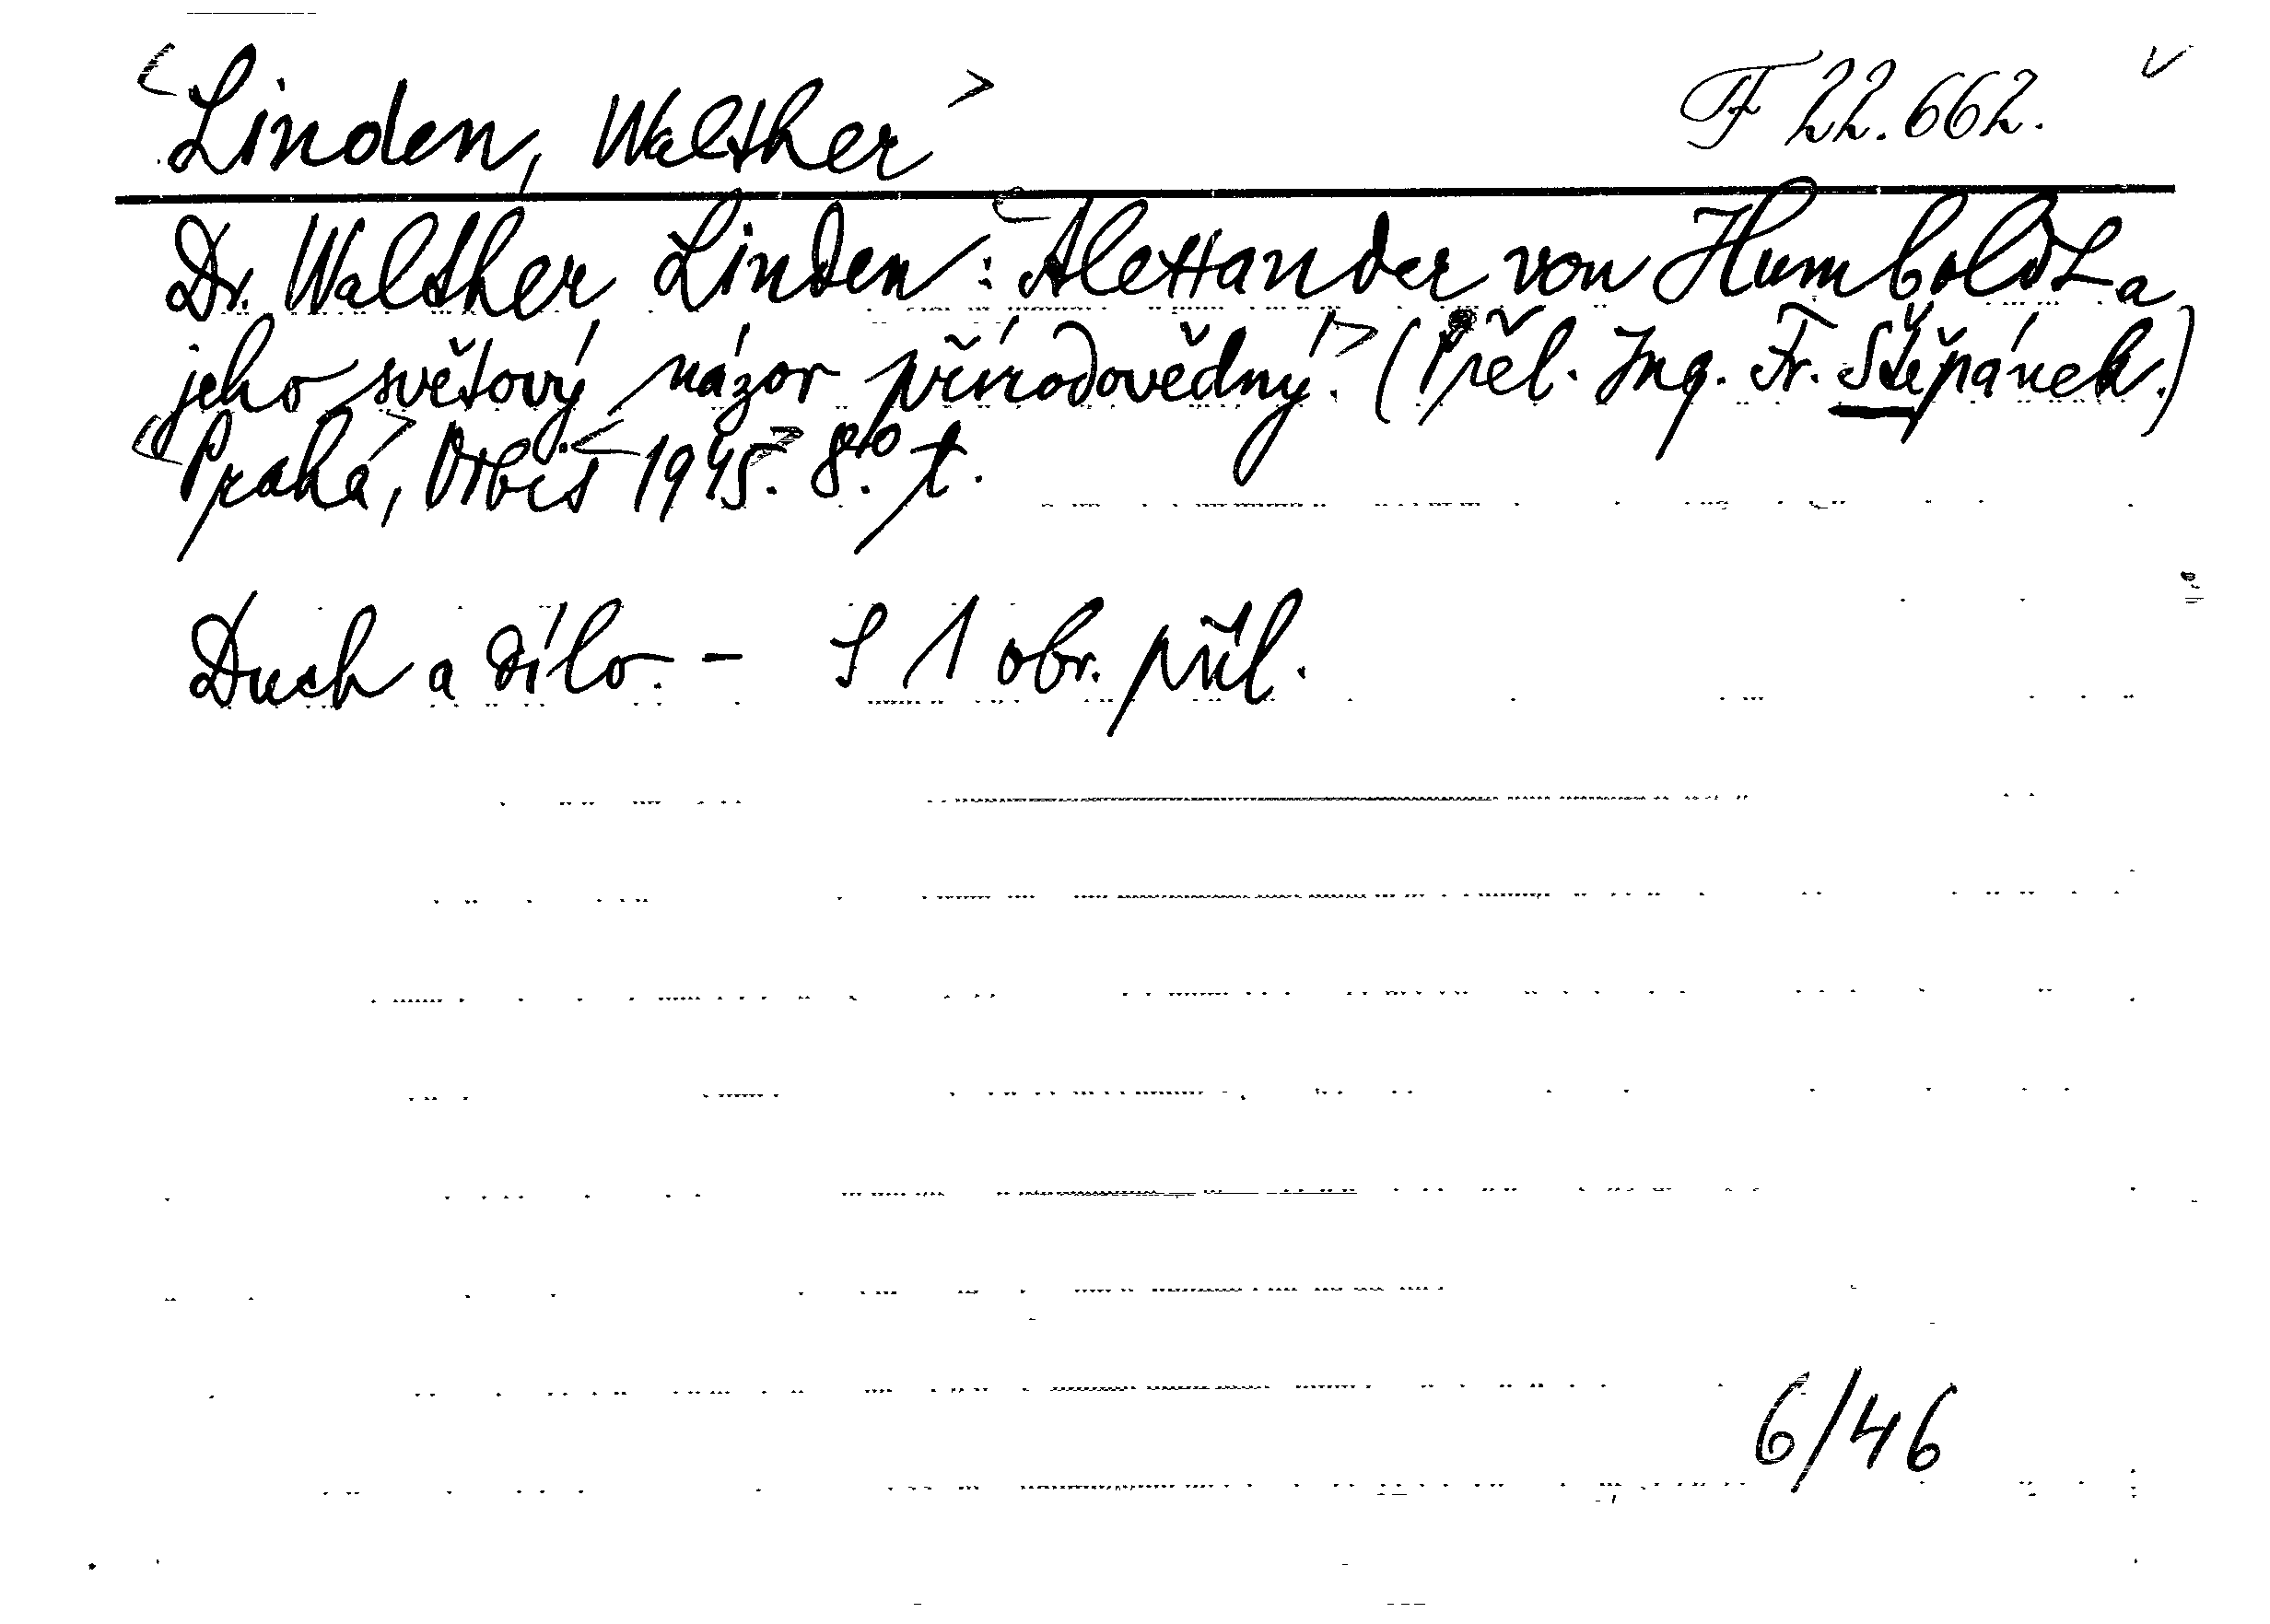 <Linden, Walther> F 22.662. ✓
Dr. Walther Linden: <Alexander von Humboldt a
jeho světový názor přírodovědný.> (Přel. Ing. Fr. Štěpánek.)
<Praha,> Orbis <1945.> 8° t.
Duch a dílo. - S 1 obr. příl.
6/46